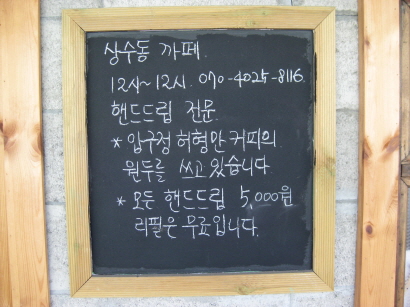 상수동 까페
12시~12시. 070-4025-8116.
핸드드립 전문
* 압구정 허형만 커피의
원두를 쓰고 있습니다.
* 모든 핸드드립 5,000원
리필은 무료입니다.